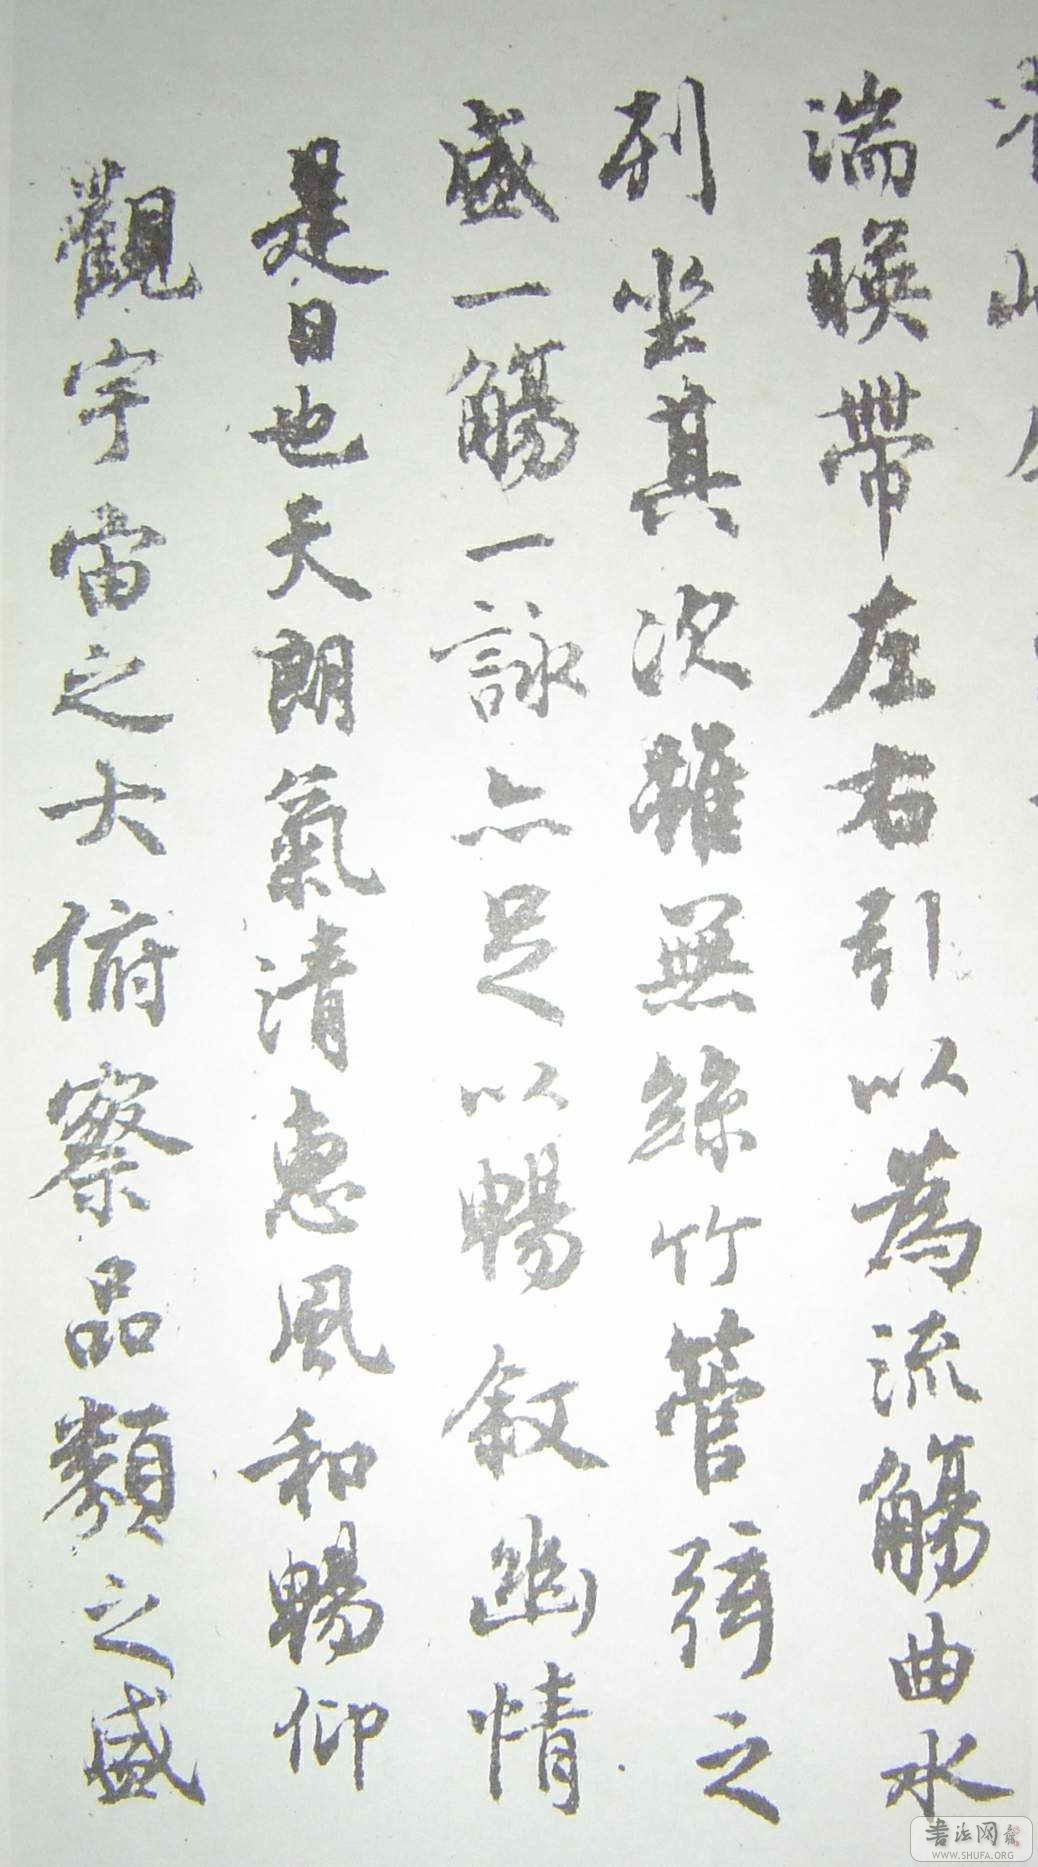 湍暎帶左右引以為流觴曲水
列坐其次雖無絲竹管弦之
盛一觴一詠亦足以暢敘幽情
是日也天朗氣清惠風和暢仰
觀宇宙之大俯察品類之盛
書法网
WWW.SHUFA.ORG